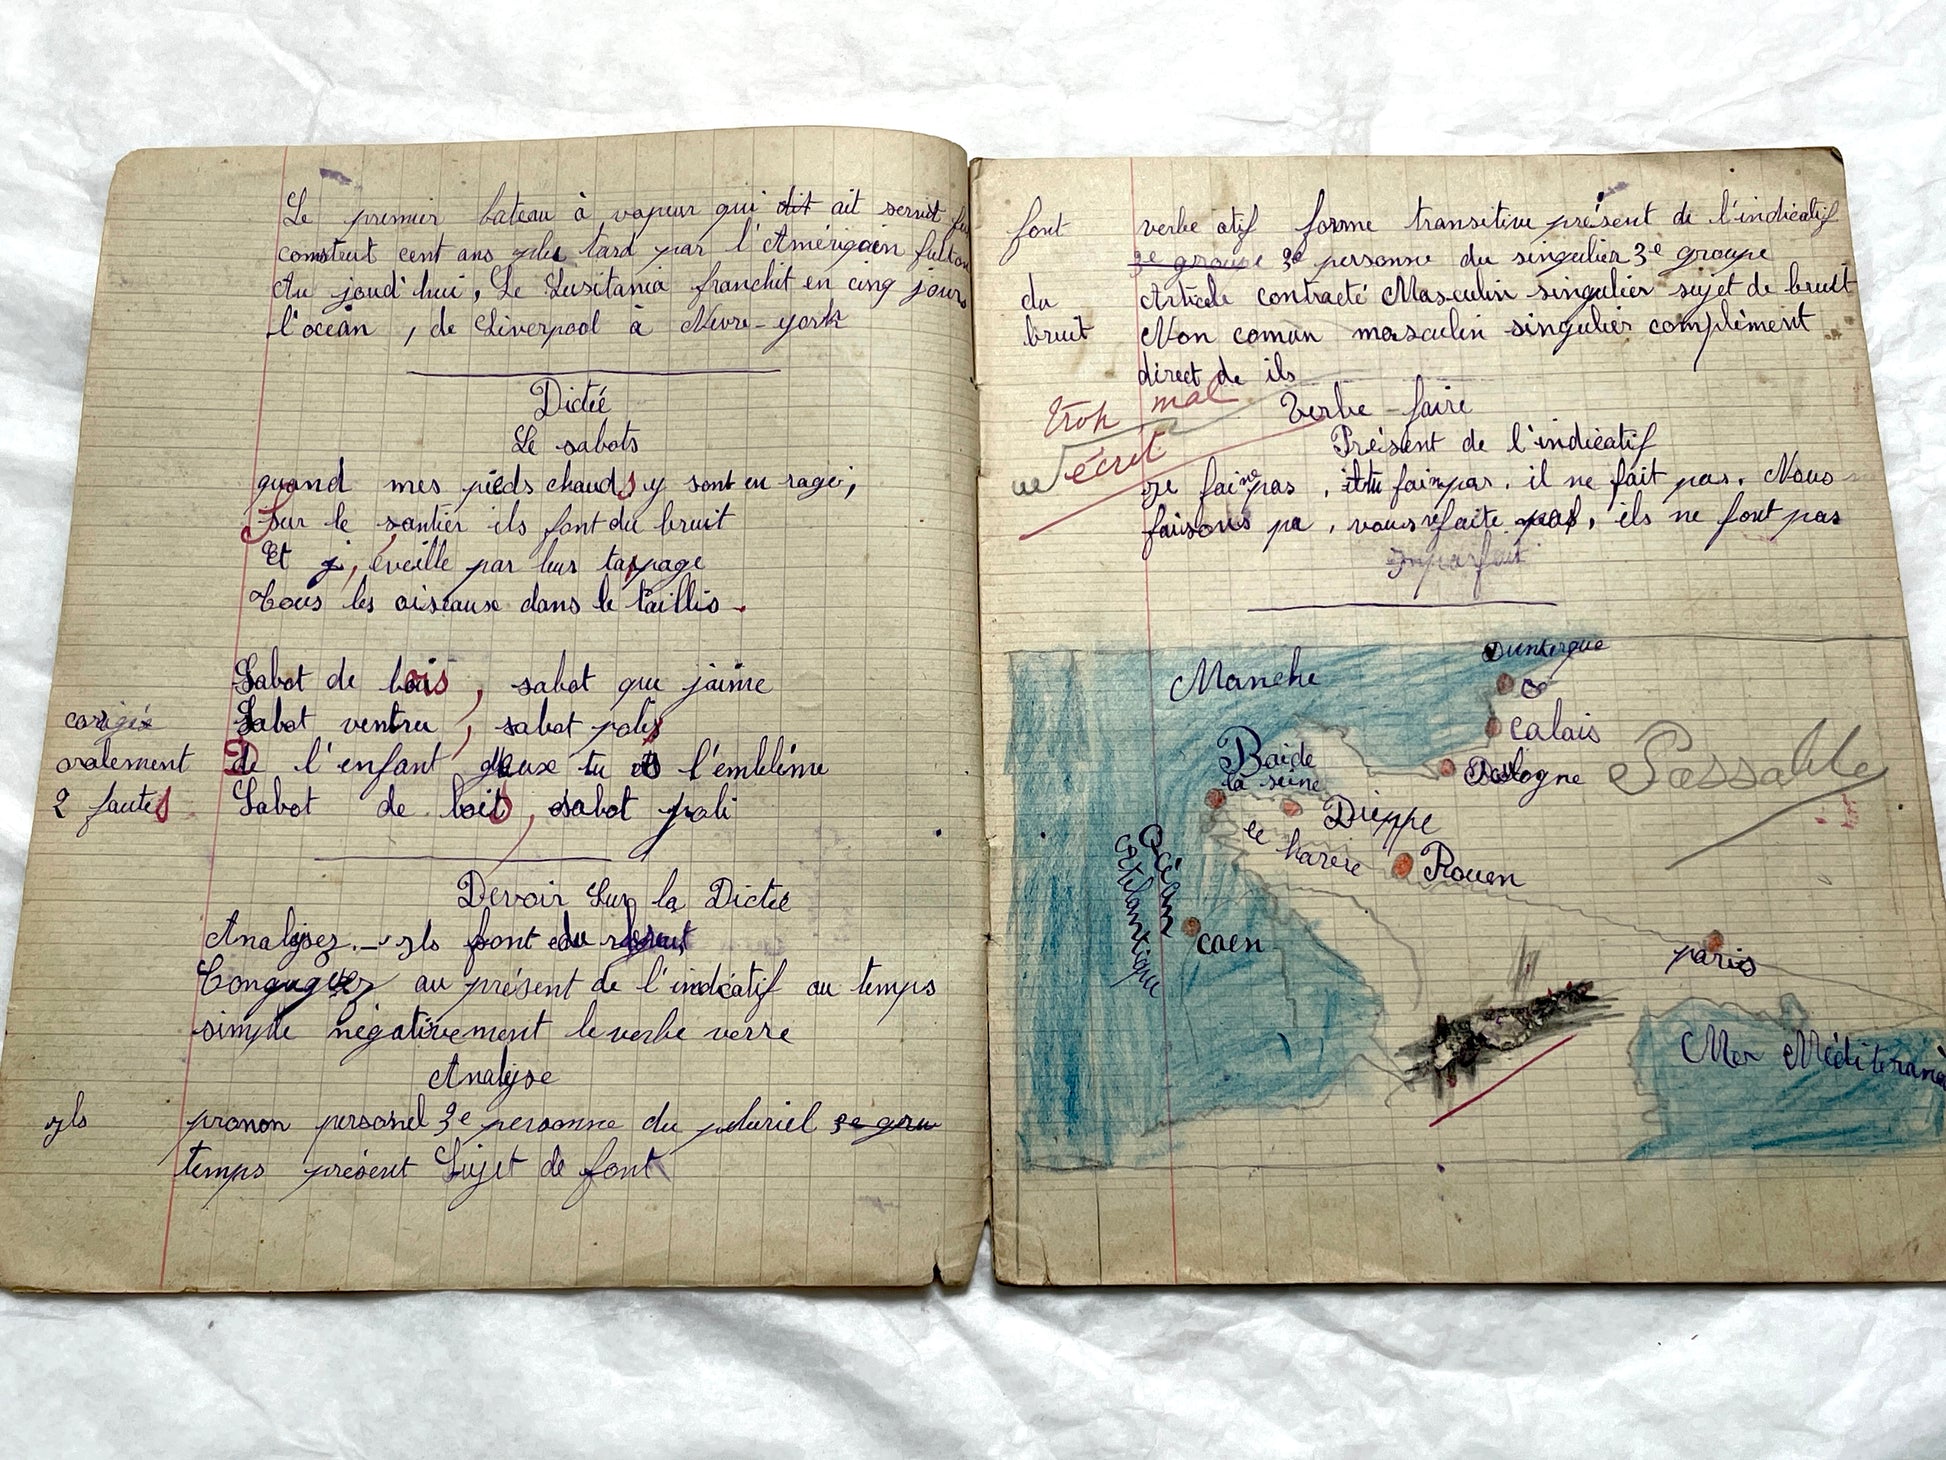 Le premier bateau à vapeur qui dit ait servit fu
constuit cent ans plus tard par l'Amérigain fulton
Au joud'hui, Le Lusitania franchit en cinq jours
l'océan, de Liverpool à Nevre-york
Dictée
Le sabots
quand mes pieds chauds y sont en rage,
Sur le santier ils font du bruit
Et j, éveille par leus tapage
Tous les oiseause dans le taillis.
Sabot de bois, sabot que jaime
Sabot ventru, sabot polis
De l'enfant gueuse tu es l'emblème
Sabot de bois, sabot poli
corigée
oralement
2 fautes
Devoir Sur la Dictée
Analysez. - Ils font du bruit
Conguguez au présent de l'indicatif au temps
simple négativement le verbe verre
Analyse
ils pronon personel 3e personne du pluriel 3e grou
temps présent Sujet de font
font verbe atif forme transitive présent de l'indicatif
3e groupe 3e personne du singulier 3e groupe
du Article contracté Masculin singulier sujet de bruit
bruit Non comun masculin singulier complément
direct de ils
trop mal
écrit
Verbe faire
Présent de l'indicatif
Je fai ne pas, tu faipas, il ne fait pas. Nous
faisons pa, vous ne faite pas, ils ne font pas
imparfait
Manche
Dunkerque
Calais
Boulogne
Baide
la seine
Dieppe
le havre
Rouen
Passable
Océan
Atelantique
caen
paris
Mer Méditerané